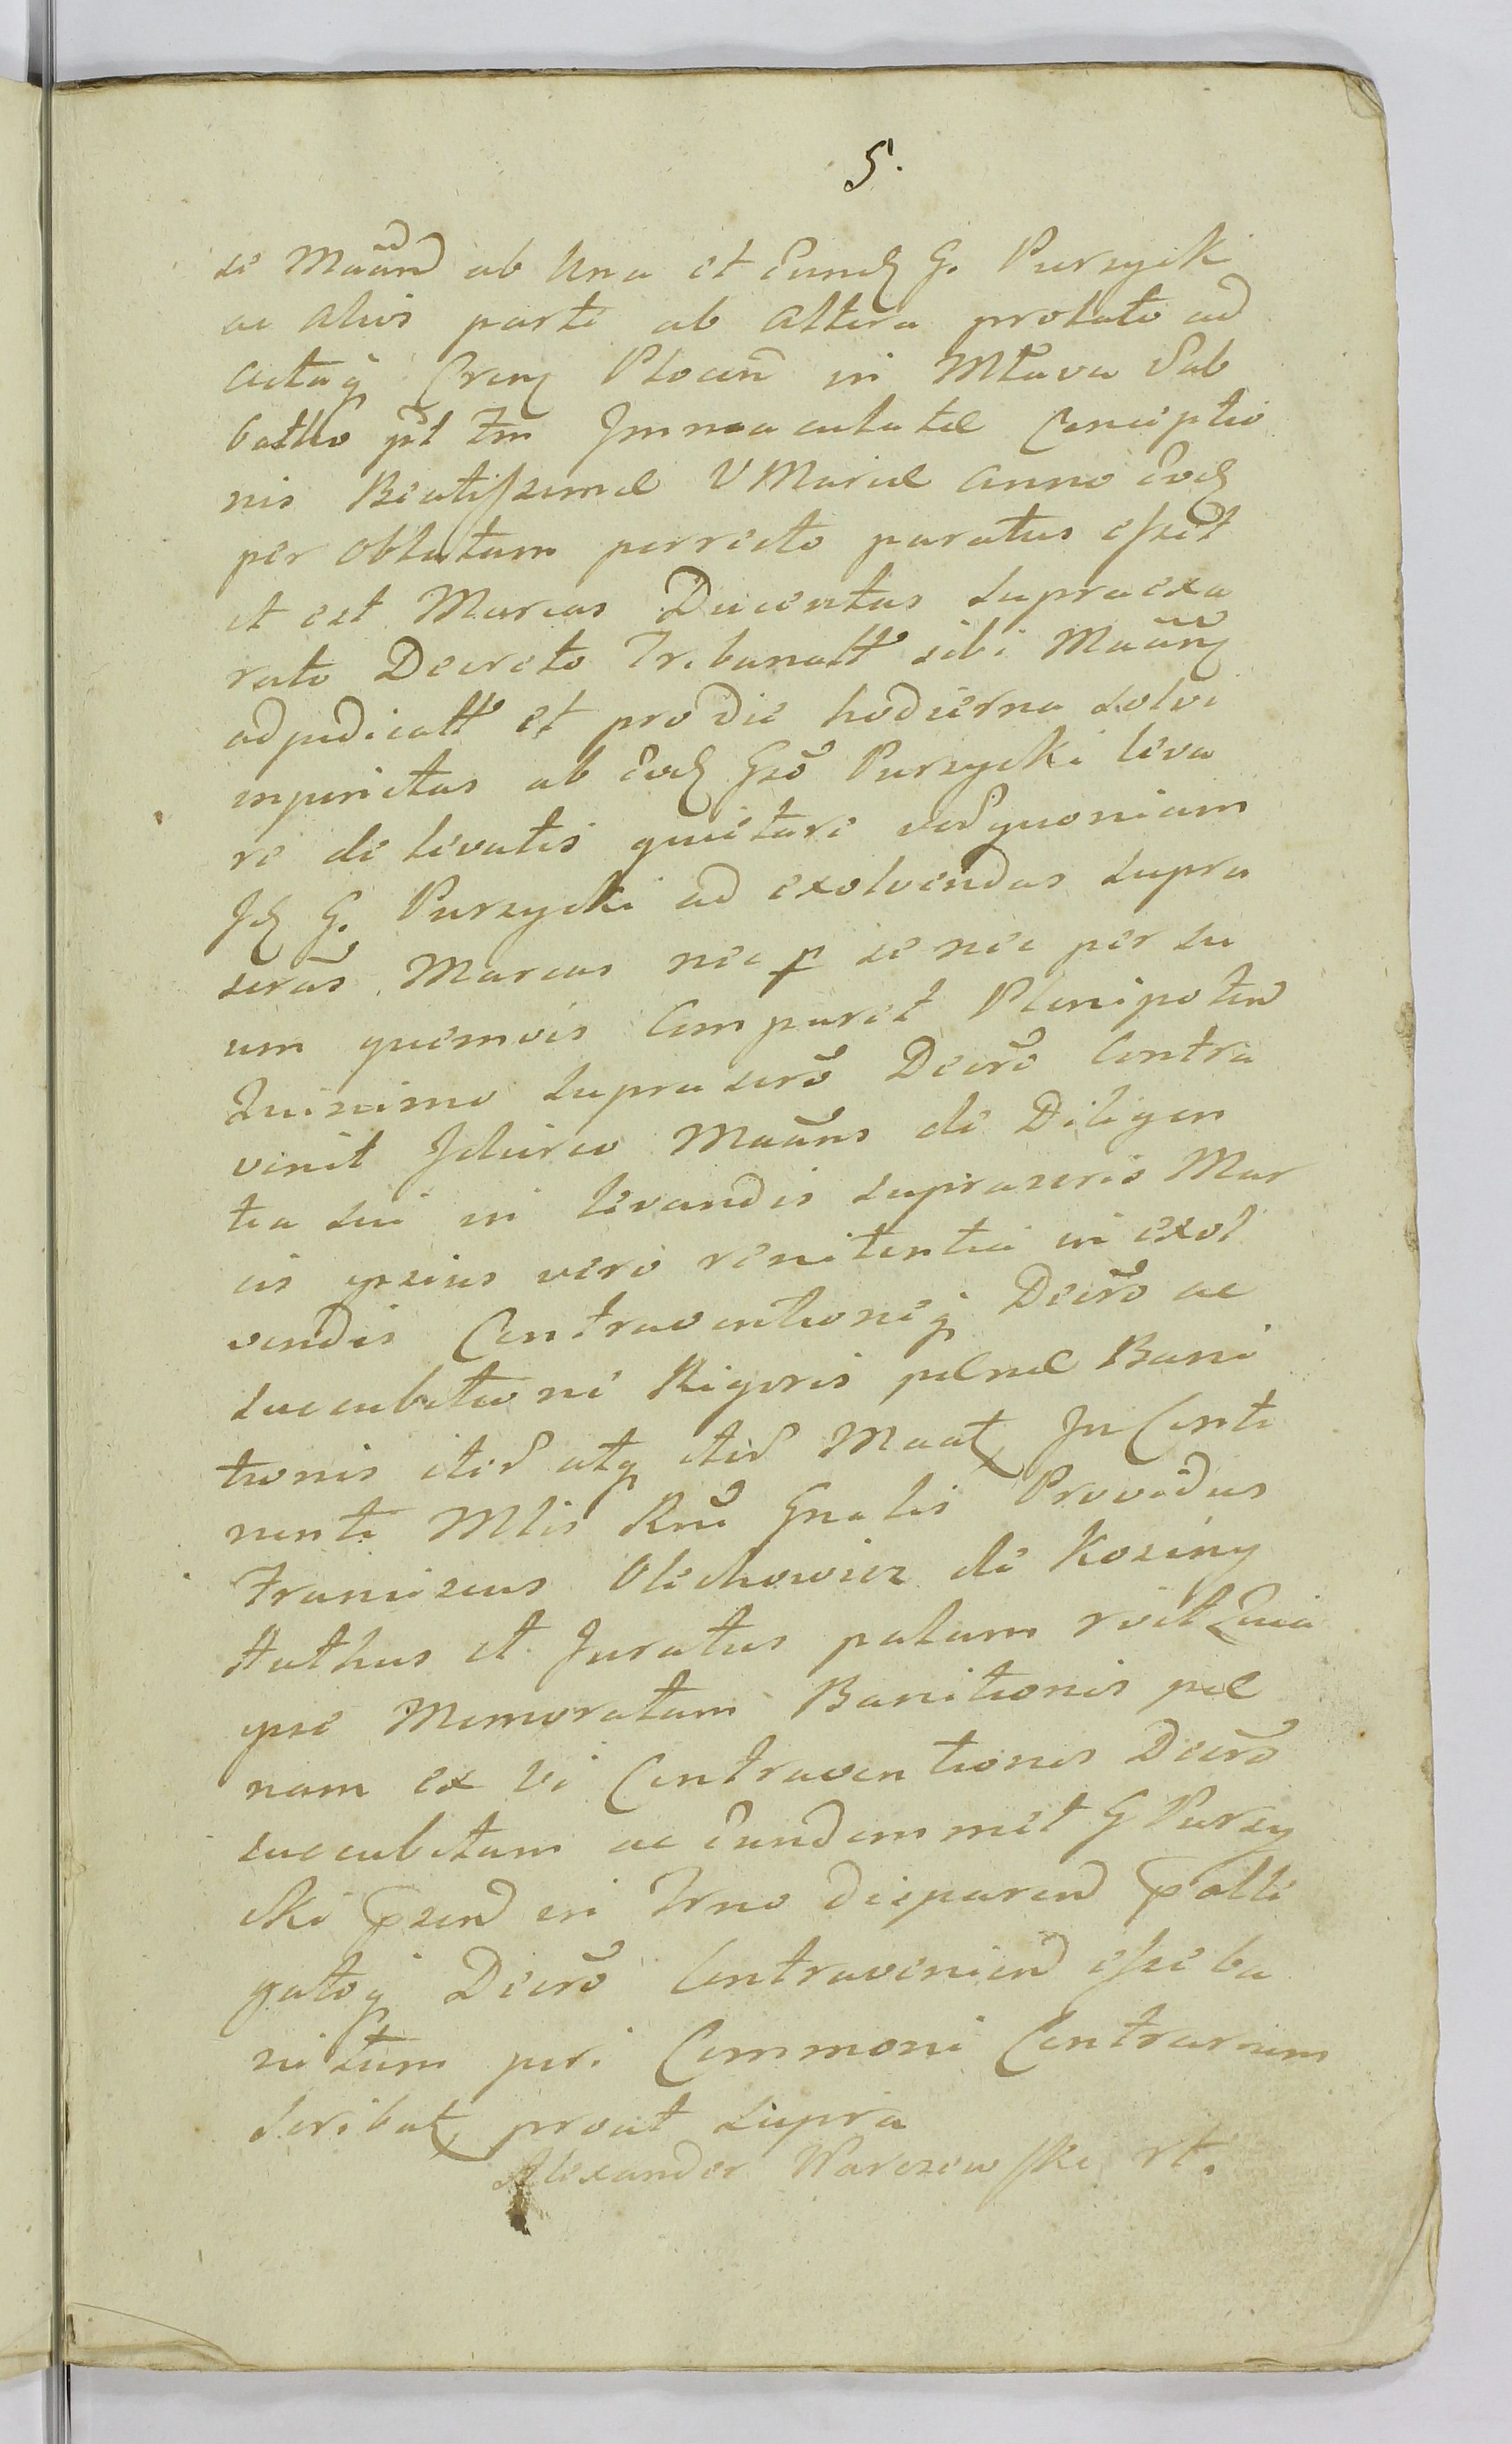 5.
se Maãnd ab Una et Eund G. Purzycki
ac aliis parte ab altera prolato ad
actaq Cren Plocen in Mława Sab
batho pt Fm Immaculatæ Conceptio
nis Beatissimæ V Mariæ anno Eod
per oblatam porrecto paratus esset
et est Marcas Ducentas supraexa
rato Decreto Tribunalt sibi Maãn
adjudicatt et pro die hodierna solvi
injunctas ab Eod Gso Purzycki leva
re de levatis quietare sed quoniam
Id G. Purzycki ad exolvendas supra
scras Marcas nec p se nec per su
um quemvis Comparet Plenipoten
Quinimo suprascro Decro Contra
venit Idcirco Maãns de Diligen
tia sui in levandis suprascris Mar
cis ipsius vero renitentia in exol
vendis Contraventioneq Decro ac
succubitione Rigoris pænæ Bani
tionis iter atq iter Maat In Conti
nenti Mlis Rni Gnalis Providus
Franciscus Olechowicz de Koziny
Hathus et Juratus palam rvit Quia
ipse Memoratam Banitionis pæ
nam ex vi Contraventionis Decro
succubitam ac Eundemmet G Purzy
cki in Trno disparen
gatoq Decro Contravenien esse ba
nitum pri Commoni Contrarium
scribat prout supra
Alexander Warszewski rt.